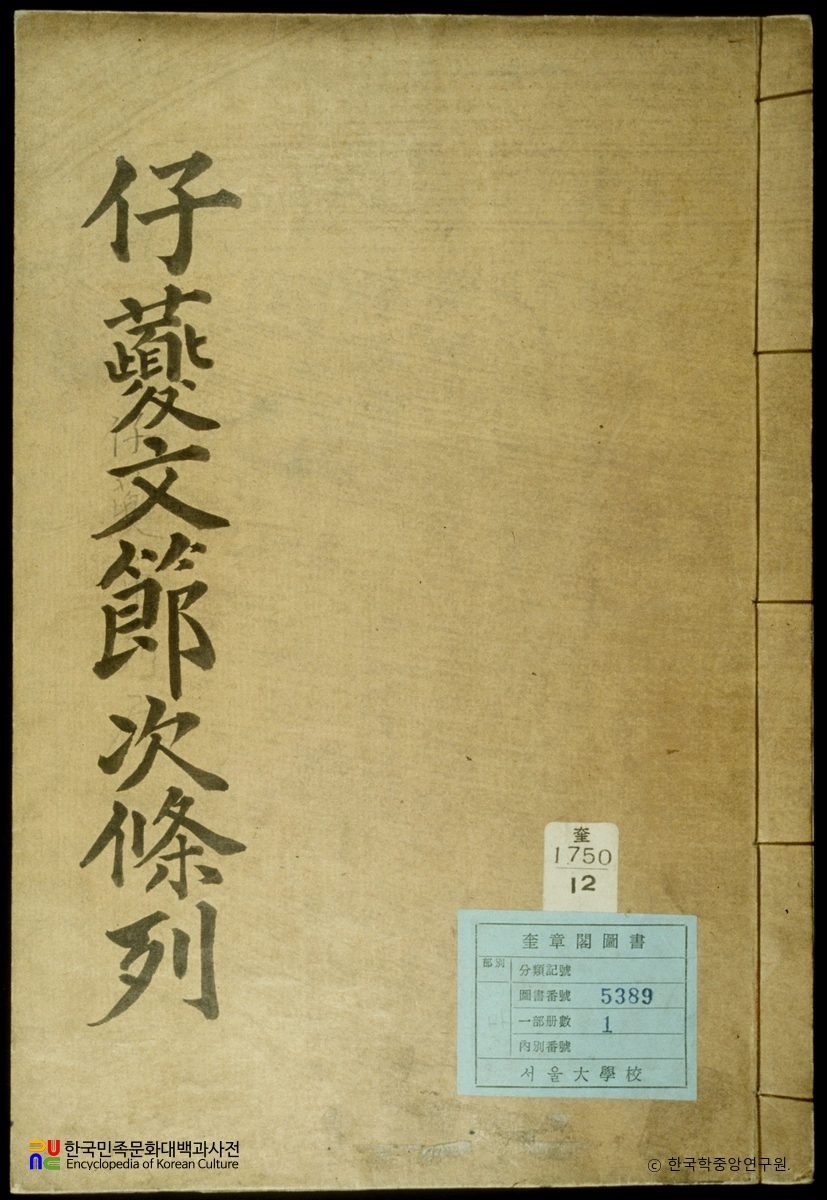 仔蘷文節次條列
奎
1750
12
奎章閣圖書
部別
分類記號
圖書番號 5389
一部册數 1
內別番號
서울大學校
한국민족문화대백과사전
Encyclopedia of Korean Culture
ⓒ 한국학중앙연구원.